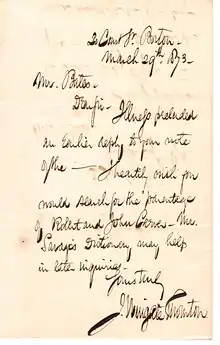 20 Court St. Boston -
March 29th 1873 -
Mr. Porter -
Dear Sir - Illness precluded
an Earlier reply to your note
of the — I heartily wish you
would search for the parentage
of Robert and John - Mr.
Savage's Dictionary may help
in late inquiries -
Yours truly
J. Wingate Thornton